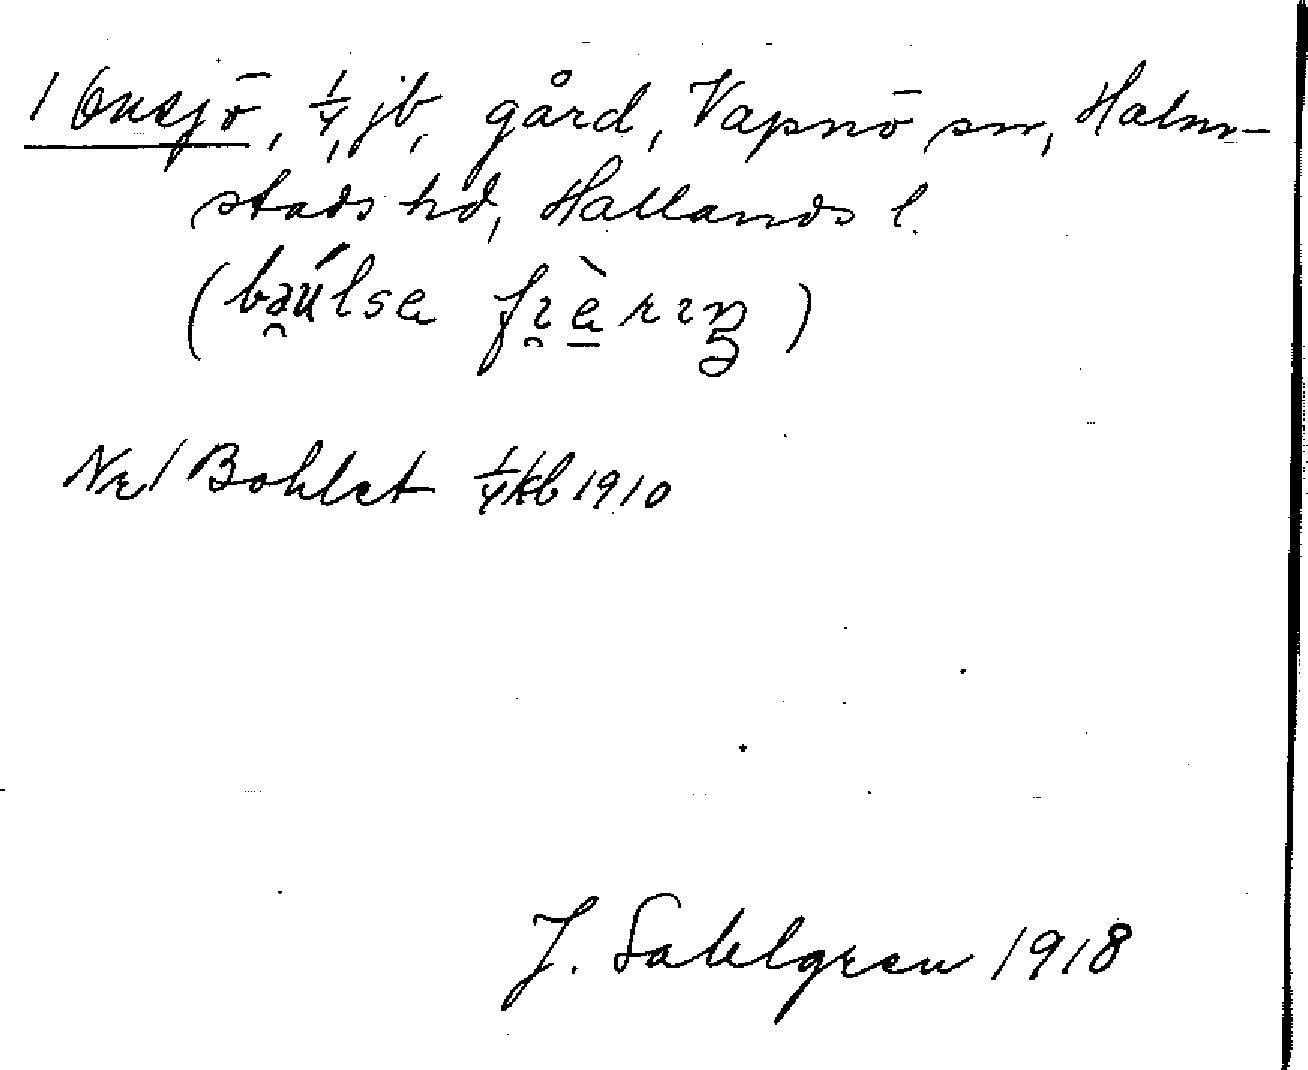 1 Onsjö, 1/4 jb, gård, Vapnö sn, Halm-
stads hd, Hallands l.
Nr 1 Bohlet 1/4 kb 1910
J. Sahlgren 1918